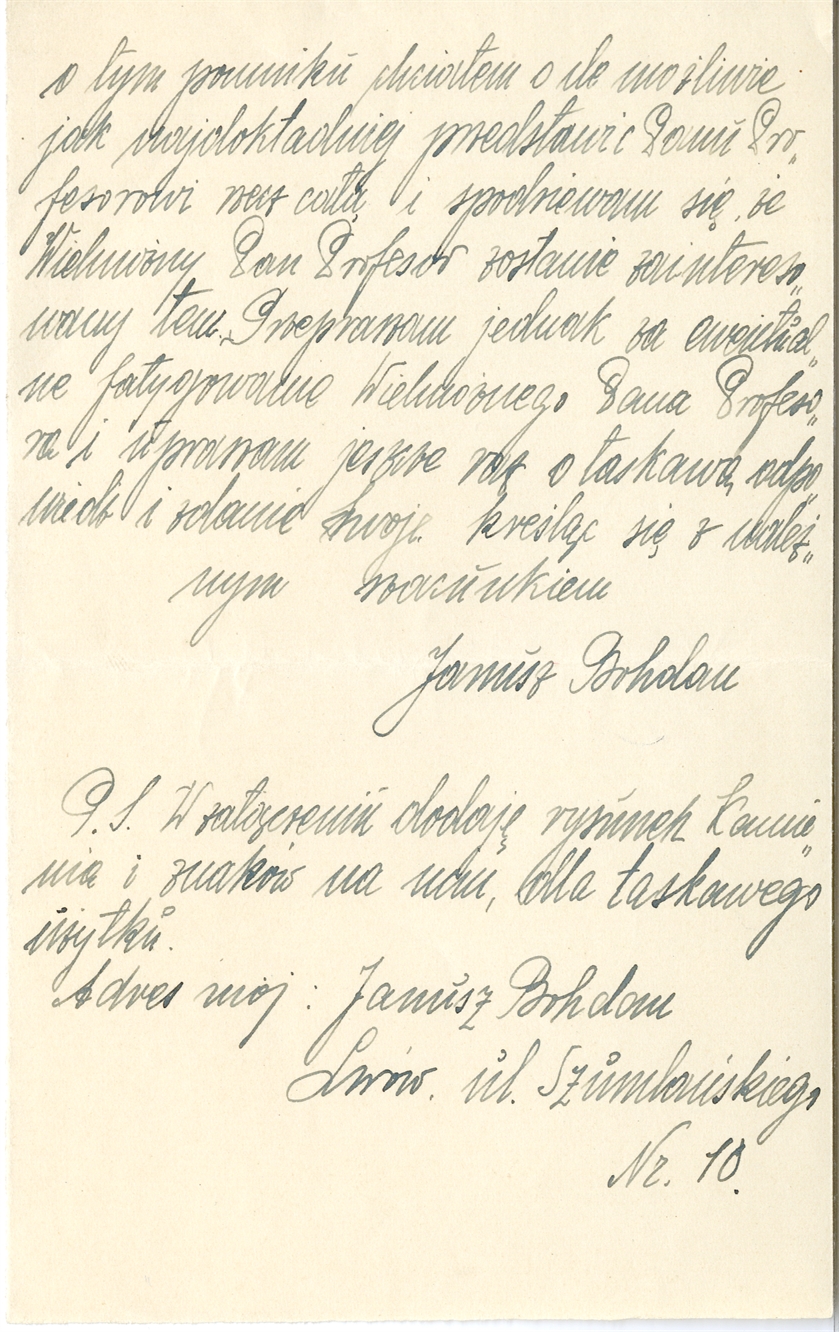 o tym pomniku chciałem o ile możliwie
jak najdokładniej przedstawić Panu Pro„
fesorowi rzecz całą i spodziewam się, że
Wielmożny Pan Profesor zostanie zaintereso„
wany tem. Przepraszam jednak za ewentual„
ne fatygowanie Wielmożnego Pana Profeso„
ra i upraszam jeszcze raz o łaskawą odpo„
wiedź i zdanie swoje kreśląc się z należ„
nym szacunkiem
Janusz Bohdan
P.S. W załączeniu dodaję rysunek Kamie„
nia i znaków na nim, dla łaskawego
użytku.
Adres mój : Janusz Bohdan
Lwów. ul. Szumlańskiego
Nr. 10.